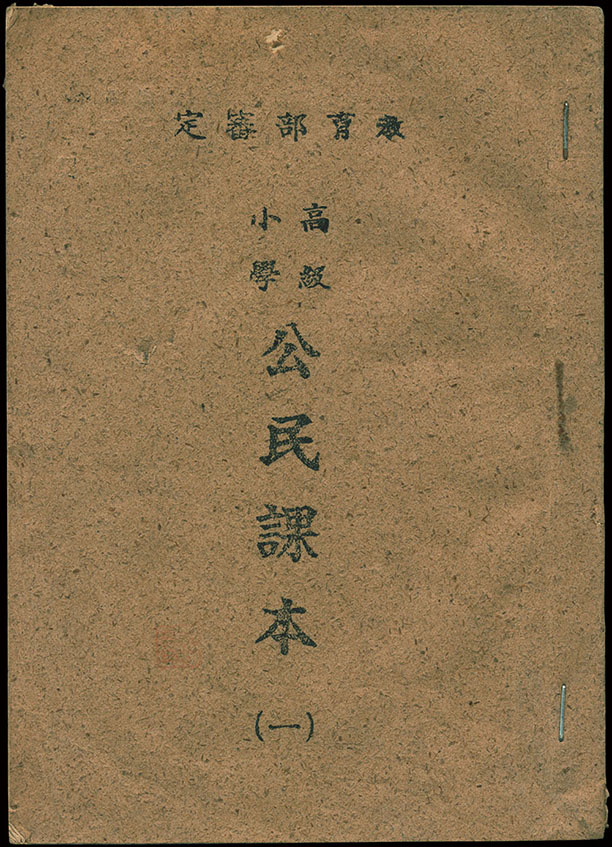 教育部審定
高級
小學
公民課本
(一)